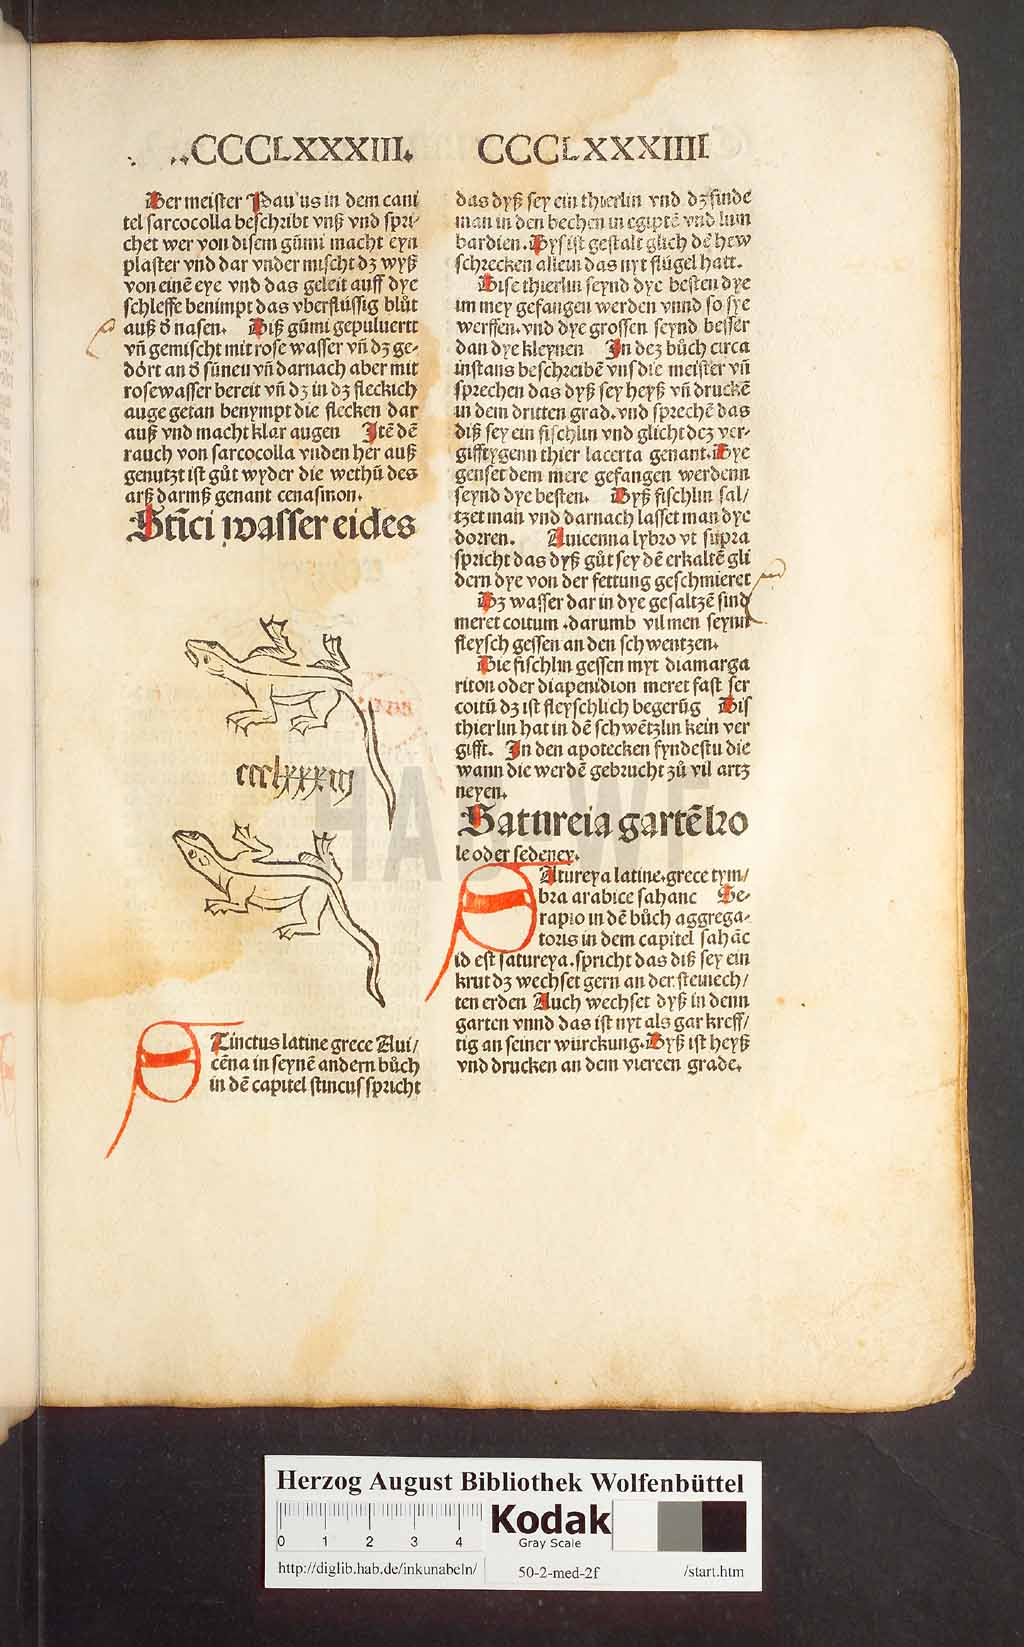 .CCCLXXXIII.
Der meister Pau'us in dem capi
tel sarcocolla beschribt vnß vnd spri-
chet wer von disem gūmi macht eyn
plaster vnd dar vnder mischt dz wyß
von einē eye vnd das geleit auff dye
schleffe benimpt das vberflüssig blůt
auß d̄ nasen. Diß gūmi gepuluertt
vn̄ gemischt mit rose wasser vn̄ dz ge-
dört an d̄ sūneu vn̄ darnach aber mit
rosewasser bereit vn̄ dz in dz fleckich
auge getan benympt die flecken dar
auß vnd macht klar augen Itē dē
rauch von sarcocolla vnden her auß
genutzt ist gůt wyder die wethū des
arß darmß genant cenasmon.
Stīci wasser eides
ccclxxxiij
STinctus latine grece Aui/
cēna in seynē andern bůch
in dē capitel stincus spricht
CCCLXXXIIII
das dyß sey ein thierlin vnd dz finde
man in den bechen in egiptē vnd lum
bardien. Dys ist gestalt glich dē hew
schrecken allein das nyt flügel hatt.
Dise thierlin seynd dye besten dye
im mey gefangen werden vnnd so sye
werffen. vnd dye grossen seynd besser
dan dye kleynen In dez bůch circa
instans beschreibē vns die meister vn̄
sprechen das dyß sey heyß vn̄ druckē
in dem dritten grad. vnd sprechē das
diß sey ein fischlin vnd glicht dez ver-
gifftygenn thier lacerta genant. Dye
genset dem mere gefangen werdenn
seynd dye besten. Dyß fischlin sal/
tzet man vnd darnach lasset man dye
dorren. Auicenna lybro vt supra
spricht das dyß gůt sey dē erkaltē gli
dern dye von der fettung geschmieret
Dz wasser dar in dye gesaltzē sind
meret coitum . darumb vil men seynn
fleysch gessen an den schwentzen.
Die fischlin gessen myt diamarga
riton oder diapenidion meret fast ser
coitū dz ist fleyschlich begerūg Dis
thierlin hat in dē schwētzlin kein ver
gifft. In den apotecken fyndestu die
wann die werdē gebrucht zů vil artz
neyen.
Satureia gartēko
le oder sedeney.
SAtureya latine. grece tym/
bra arabice sahanc Se-
rapio in dē bůch aggrega-
toris in dem capitel sahāc
id est satureya. spricht das diß sey ein
krut dz wechset gern an der steinech/
ten erden Auch wechset dyß in denn
garten vnnd das ist nyt als gar kreff/
tig an seiner würckung. Dyß ist heyß
vnd drucken an dem viereen grade.
HAB WF
Herzog August Bibliothek Wolfenbüttel
0 1 2 3 4
Kodak
Gray Scale
http://diglib.hab.de/inkunabeln/ 50-2-med-2f /start.htm